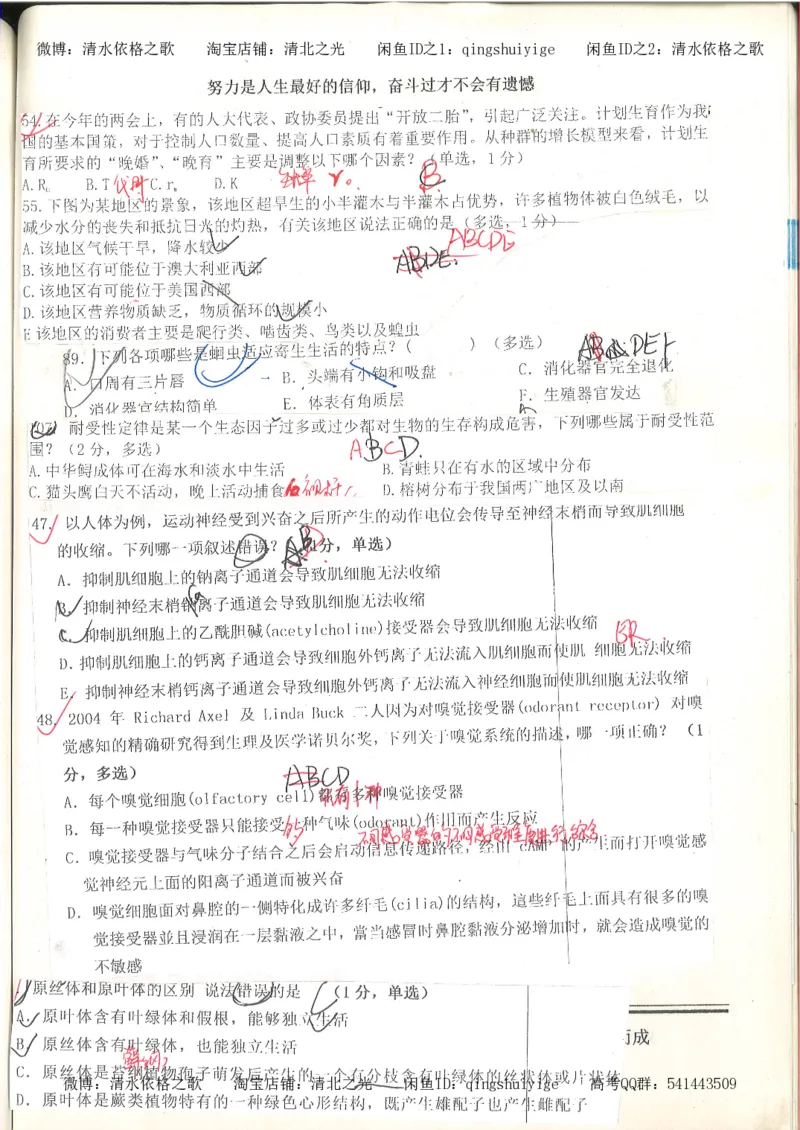 微博：清水依格之歌 淘宝店铺：清北之光 闲鱼ID之1：qingshuiyige 闲鱼ID之2：清水依格之歌
努力是人生最好的信仰，奋斗过才不会有遗憾
54.在今年的两会上，有的人大代表、政协委员提出“开放二胎”，引起广泛关注。计划生育作为我
国的基本国策，对于控制人口数量、提高人口素质有着重要作用。从种群的增长模型来看，计划生
育所要求的“晚婚”、“晚育”主要是调整以下哪个因素？（单选，1分）
A.R₀ B.T C.rₘ D.K B
55.下图为某地区的景象，该地区超旱生的小半灌木与半灌木占优势，许多植物体被白色绒毛，以
减少水分的丧失和抵抗日光的灼热，有关该地区说法正确的是（多选，1分）
ABCDE
A.该地区气候干旱，降水较少
ABDE.
B.该地区有可能位于澳大利亚西部
C.该地区有可能位于美国西部
D.该地区营养物质缺乏，物质循环的规模小
E 该地区的消费者主要是爬行类、啮齿类、鸟类以及蝗虫
89. 下列各项哪些是蛔虫适应寄生生活的特点？（ ）（多选）
A. 口周有三片唇 B. 头端有小钩和吸盘 C. 消化器官完全退化
D. 消化器官结构简单 E. 体表有角质层 F. 生殖器官发达
耐受性定律是某一个生态因子过多或过少都对生物的生存构成危害，下列哪些属于耐受性范
围？（2分，多选） ABCD.
A.中华鲟成体可在海水和淡水中生活 B.青蛙只在有水的区域中分布
C.猫头鹰白天不活动，晚上活动捕食 D.榕树分布于我国两广地区及以南
47. 以人体为例，运动神经受到兴奋之后所产生的动作电位会传导至神经末梢而导致肌细胞
的收缩。下列哪一项叙述错误？（1分，单选）
A. 抑制肌细胞上的钠离子通道会导致肌细胞无法收缩
B. 抑制神经末梢钠离子通道会导致肌细胞无法收缩
C. 抑制肌细胞上的乙酰胆碱(acetylcholine)接受器会导致肌细胞无法收缩
D. 抑制肌细胞上的钙离子通道会导致细胞外钙离子无法流入肌细胞而使肌 细胞无法收缩
E. 抑制神经末梢钙离子通道会导致细胞外钙离子无法流入神经细胞而使肌细胞无法收缩
48. 2004 年 Richard Axel 及 Linda Buck 二人因为对嗅觉接受器(odorant receptor) 对嗅
觉感知的精确研究得到生理及医学诺贝尔奖，下列关于嗅觉系统的描述，哪一项正确？（1
分，多选） ABCD
A. 每个嗅觉细胞(olfactory cell)都有多种嗅觉接受器
B. 每一种嗅觉接受器只能接受一种气味(odorant)作用而产生反应
C. 嗅觉接受器与气味分子结合之后会启动信息传递路径，经由 cAMP 的产生而打开嗅觉感
觉神经元上面的阳离子通道而被兴奋
D. 嗅觉细胞面对鼻腔的一侧特化成许多纤毛(cilia)的结构，這些纤毛上面具有很多的嗅
觉接受器並且浸润在一层黏液之中，當当感冒时鼻腔黏液分泌增加时，就会造成嗅觉的
不敏感
原丝体和原叶体的区别 说法错误的是 （1分，单选）
A. 原叶体含有叶绿体和假根，能够独立生活
B. 原丝体含有叶绿体，也能独立生活
C. 原丝体是苔藓植物孢子萌发后产生的一个有分枝含有叶绿体的丝状体或片状体
微博：清水依格之歌 淘宝店铺：清北之光 闲鱼ID：qingshuiyige 高考QQ群：541443509
D. 原叶体是蕨类植物特有的一种绿色心形结构，既产生雄配子也产生雌配子
而成